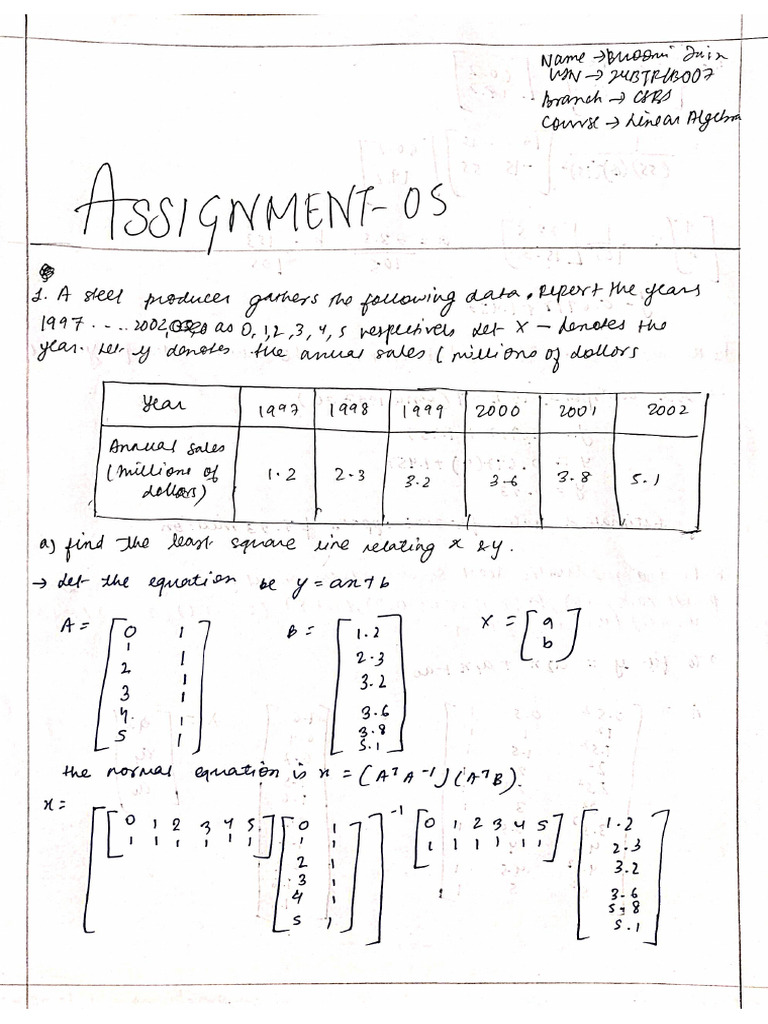 Name → Bhoomi Jain
USN → 24BTRLB007
Branch →
Course → Linear Algebra
ASSIGNMENT-05
1. A steel producer gathers the following data. Report the years
1997 . . . . . 2002, as 0, 1, 2, 3, 4, 5 respectively let X – denotes the
year. Let y denotes the annual sales ( millions of dollors
Year 1997 1998 1999 2000 2001 2002
Annual sales
(millions of 1.2 2.3 3.2 3.6 3.8 5.1
dollars)
a) find the least square line relating x & y.
→ let the equation be y = ax + b
A = [ 0 1 B = [ 1.2 X = [ a
1 1 2.3 b ]
2 1 3.2
3 1 3.6
4 1 3.8
5 1 ] 5.1 ]
the normal equation is x = (AᵀA⁻¹)(AᵀB).
x =
[ [ 0 1 2 3 4 5 [ 0 1 ]⁻¹ [ 0 1 2 3 4 5 [ 1.2
1 1 1 1 1 1 ] 1 1 1 1 1 1 1 1 ] 2.3
2 1 3.2
3 1 3.6
4 1 5.8
5 1 ] 5.1 ]